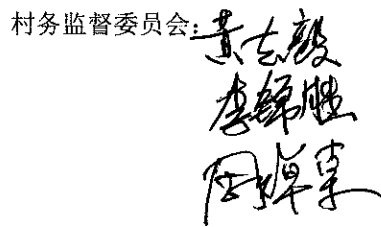 村务监督委员会：黄志毅
李锦胜